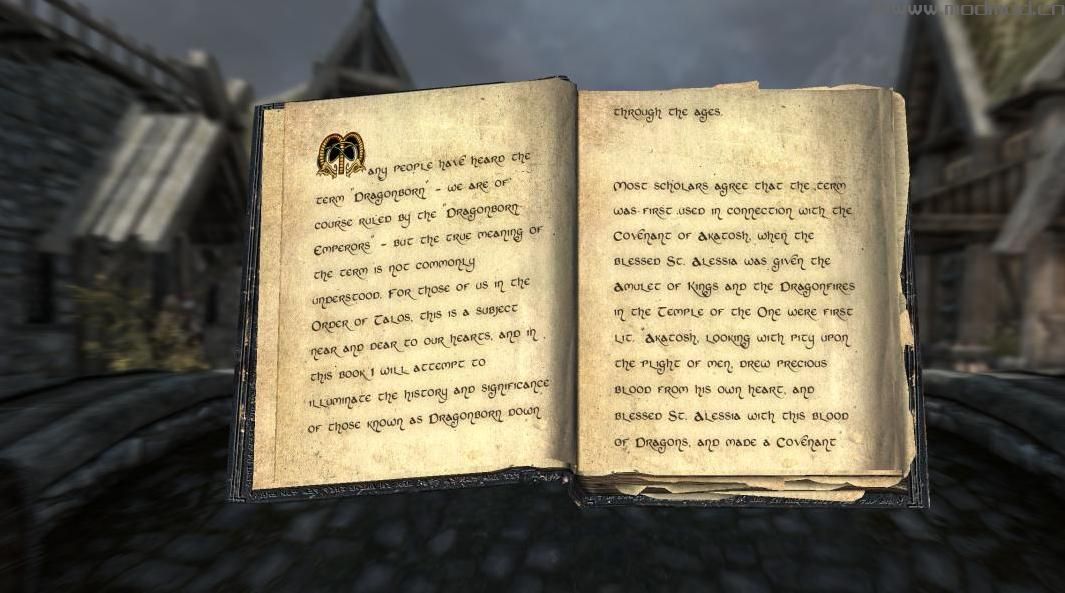 www.modmod.cn
Many people have heard the
term "Dragonborn" - we are of
course ruled by the "Dragonborn
Emperors" - but the true meaning of
the term is not commonly
understood. For those of us in the
Order of Talos, this is a subject
near and dear to our hearts, and in
this book I will attempt to
illuminate the history and significance
of those known as Dragonborn down
through the ages.
Most scholars agree that the term
was first used in connection with the
Covenant of Akatosh, when the
blessed St. Alessia was given the
Amulet of Kings and the Dragonfires
in the Temple of the One were first
lit. "Akatosh, looking with pity upon
the plight of men, drew precious
blood from his own heart, and
blessed St. Alessia with this blood
of Dragons, and made a Covenant